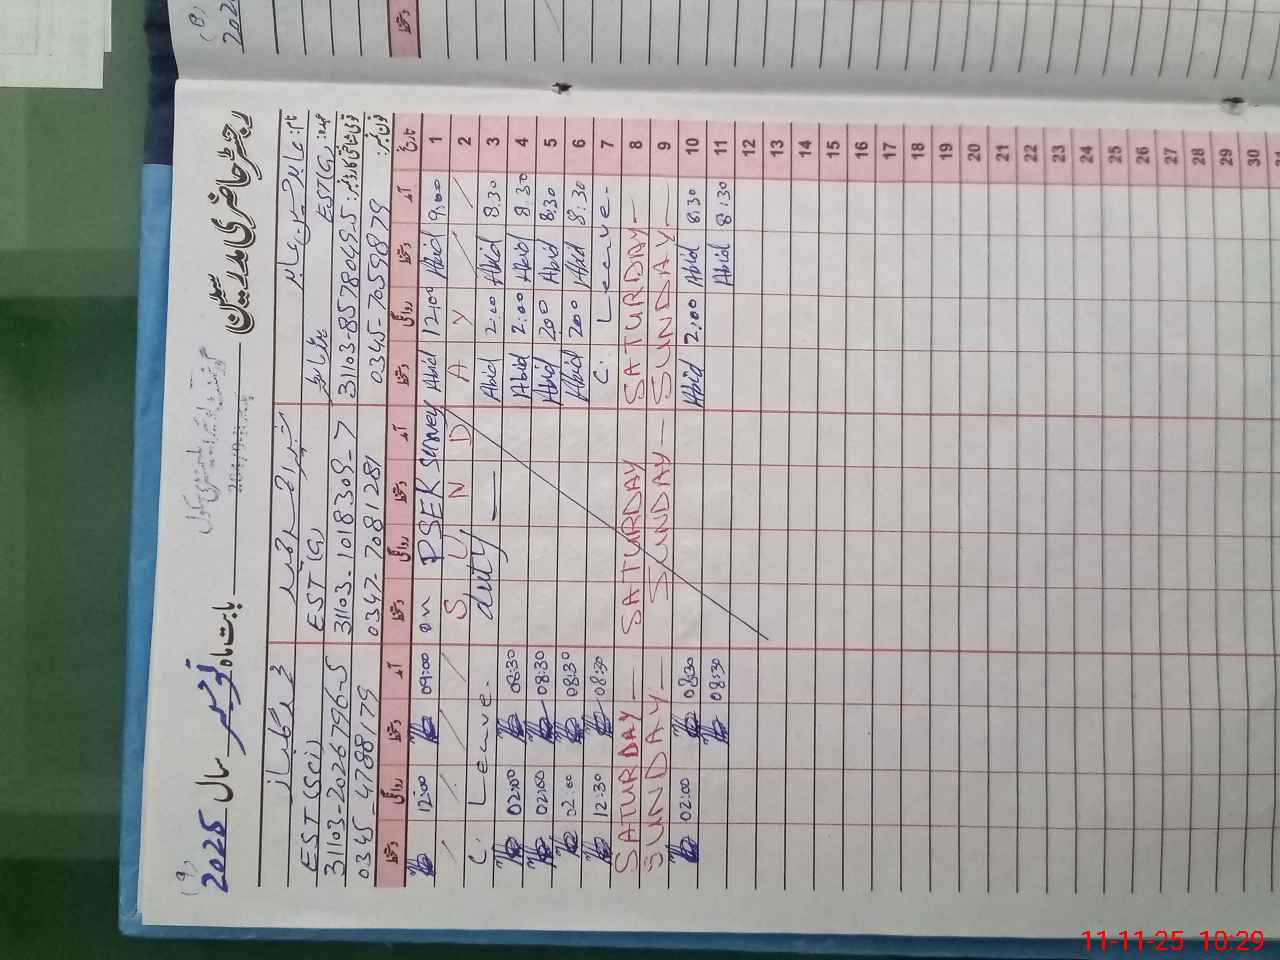 رجسٹر حاضری مدرسین
بابت ماہ نومبر سال 2025
(9)
نام: عابد حسین عابد
عہدہ: EST(G)
قومی شناختی کارڈ نمبر: 31103-8578049-5
فون نمبر: 0345-7059879
EST (G)
31103-1018309-7
0347-7081281
محمد گلباز
EST (Sci)
31103-2026796-5
0345-4788179
تاریخ آمد دستخط روانگی دستخط آمد دستخط روانگی دستخط آمد دستخط روانگی دستخط
1 9:00 Abid 12:00 Abid on PSER Survey 09:00 12:00
2 S U N D A Y
duty
3 8:30 Abid 2:00 Abid C. Leave.
4 8:30 Abid 2:00 Abid 08:30 02:00
5 8:30 Abid 200 Abid 08:30 02:00
6 8:30 Abid 200 Abid 08:30 02:00
7 C. Leave. 08:30 12:30
8 SATURDAY SATURDAY SATURDAY
9 SUNDAY SUNDAY SUNDAY
10 8:30 Abid 2:00 Abid 08:30 02:00
11 8:30 Abid 08:30
12
13
14
15
16
17
18
19
20
21
22
23
24
25
26
27
28
29
30
31
11-11-25 10:29